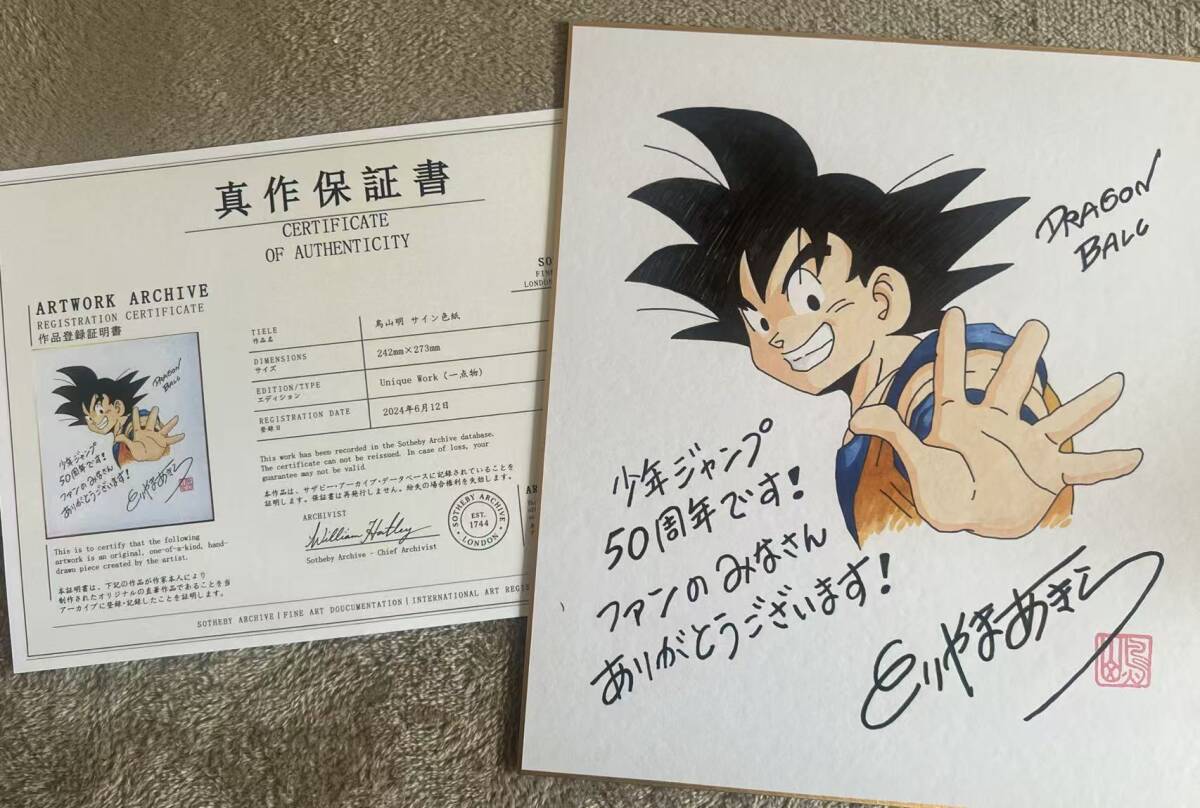 真作保証書
CERTIFICATE
OF AUTHENTICITY
ARTWORK ARCHIVE
REGISTRATION CERTIFICATE
作品登録証明書
DRAGON
BALL
少年ジャンプ
50周年です!
ファンのみなさん
ありがとうございます!
とりやまあきら
This is to certify that the following
artwork is an original, one-of-a-kind, hand-
drawn piece created by the artist.
本証明書は、下記の作品が作家本人により
制作されたオリジナルの直筆作品であることを当
アーカイブに登録・記録したことを証明します。
SO
FIN
LONDON
TIELE
作品名
鳥山明 サイン色紙
DIMENSIONS
サイズ
242mm×273mm
EDITION/TYPE
エディション
Unique Work (一点物)
REGISTRATION DATE
登録日
2024年6月12日
This work has been recorded in the Sotheby Archive database.
The certificate can not be reissued. In case of loss, your
guarantee may not be valid.
本作品は、サザビー・アーカイブ・データベースに記録されていることを
証明します。保証書は再発行しません。紛失の場合権利を失効します。
ARCHIVIST
William Hatley
Sotheby Archive - Chief Archivist
SOTHEBY ARCHIVE
EST.
1744
LONDON
AR
SOTHEBY ARCHIVE | FINE ART DOUCUMENTATION | INTERNATIONAL ART REGIS
DRAGON
BALL
少年ジャンプ
50周年です!
ファンのみなさん
ありがとうございます!
とりやまあきら